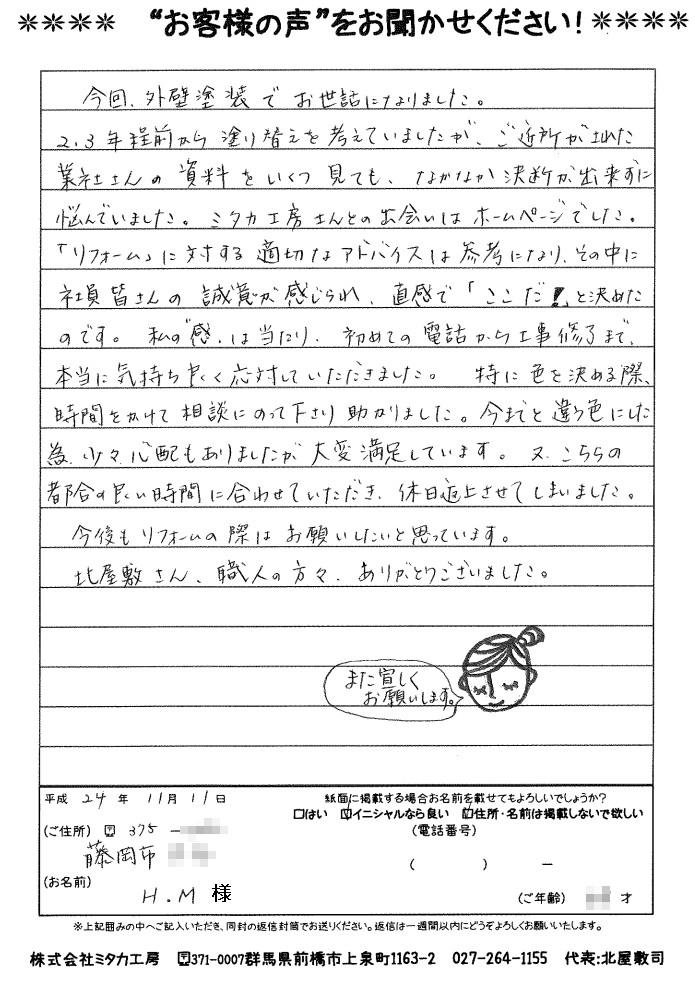 ❊❊❊❊ “お客様の声”をお聞かせください！❊❊❊❊
今回、外壁塗装で お世話になりました。
2、3年程前から 塗り替えを 考えていましたが、ご近所が出した
業社さんの 資料を いくつ 見ても、なかなか 決断が出来ずに
悩んでいました。ミタカ工房さんとの出会いは ホームページでした。
「リフォーム」に 対する 適切なアドバイスは 参考になり、その中に
社員 皆さんの 誠意が 感じられ、直感で「ここだ！」と決めた
のです。 私の“感”は当たり、初めての 電話から工事修了まで、
本当に 気持ち良く 応対していただきました。 特に 色を 決める際、
時間をかけて 相談にのって下さり 助かりました。今までと 違う色にした
為、少々、心配もありましたが 大変 満足しています。 又、こちらの
都合の良い時間に合わせていただき、休日返上させてしまいました。
今後も リフォームの 際は お願いしたいと思っています。
北屋敷さん、職人の方々、ありがとうございました。
また宜しく
お願いします。
平成 24 年 11月 11日
紙面に掲載する場合お名前を載せてもよろしいでしょうか？
□はい ☑イニシャルなら良い ☑住所・名前は掲載しないで欲しい
(ご住所) 〒 375 −
(電話番号)
藤岡市
( ) −
(お名前)
H.M 様
(ご年齢) 才
※上記囲みの中へご記入いただき、同封の返信封筒でお送りください。返信は一週間以内にどうぞよろしくお願いいたします。
株式会社ミタカ工房 〒371-0007群馬県前橋市上泉町1163-2 027-264-1155 代表:北屋敷司